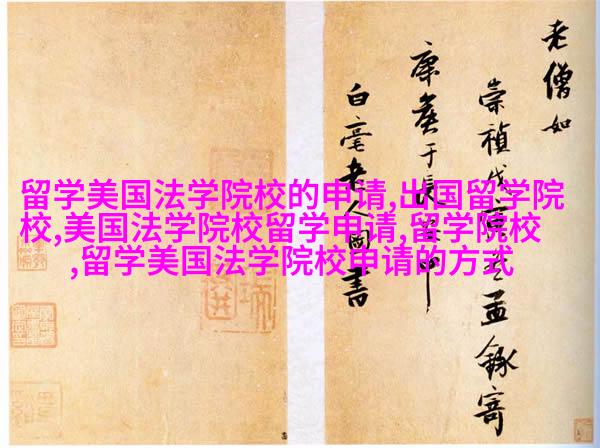 留学美国法学院校的申请,出国留学院
校,美国法学院校留学申请,留学院校
,留学美国法学院校申请的方式
老僧如
崇禎戊孟錄寄
康于長
白毫老人書